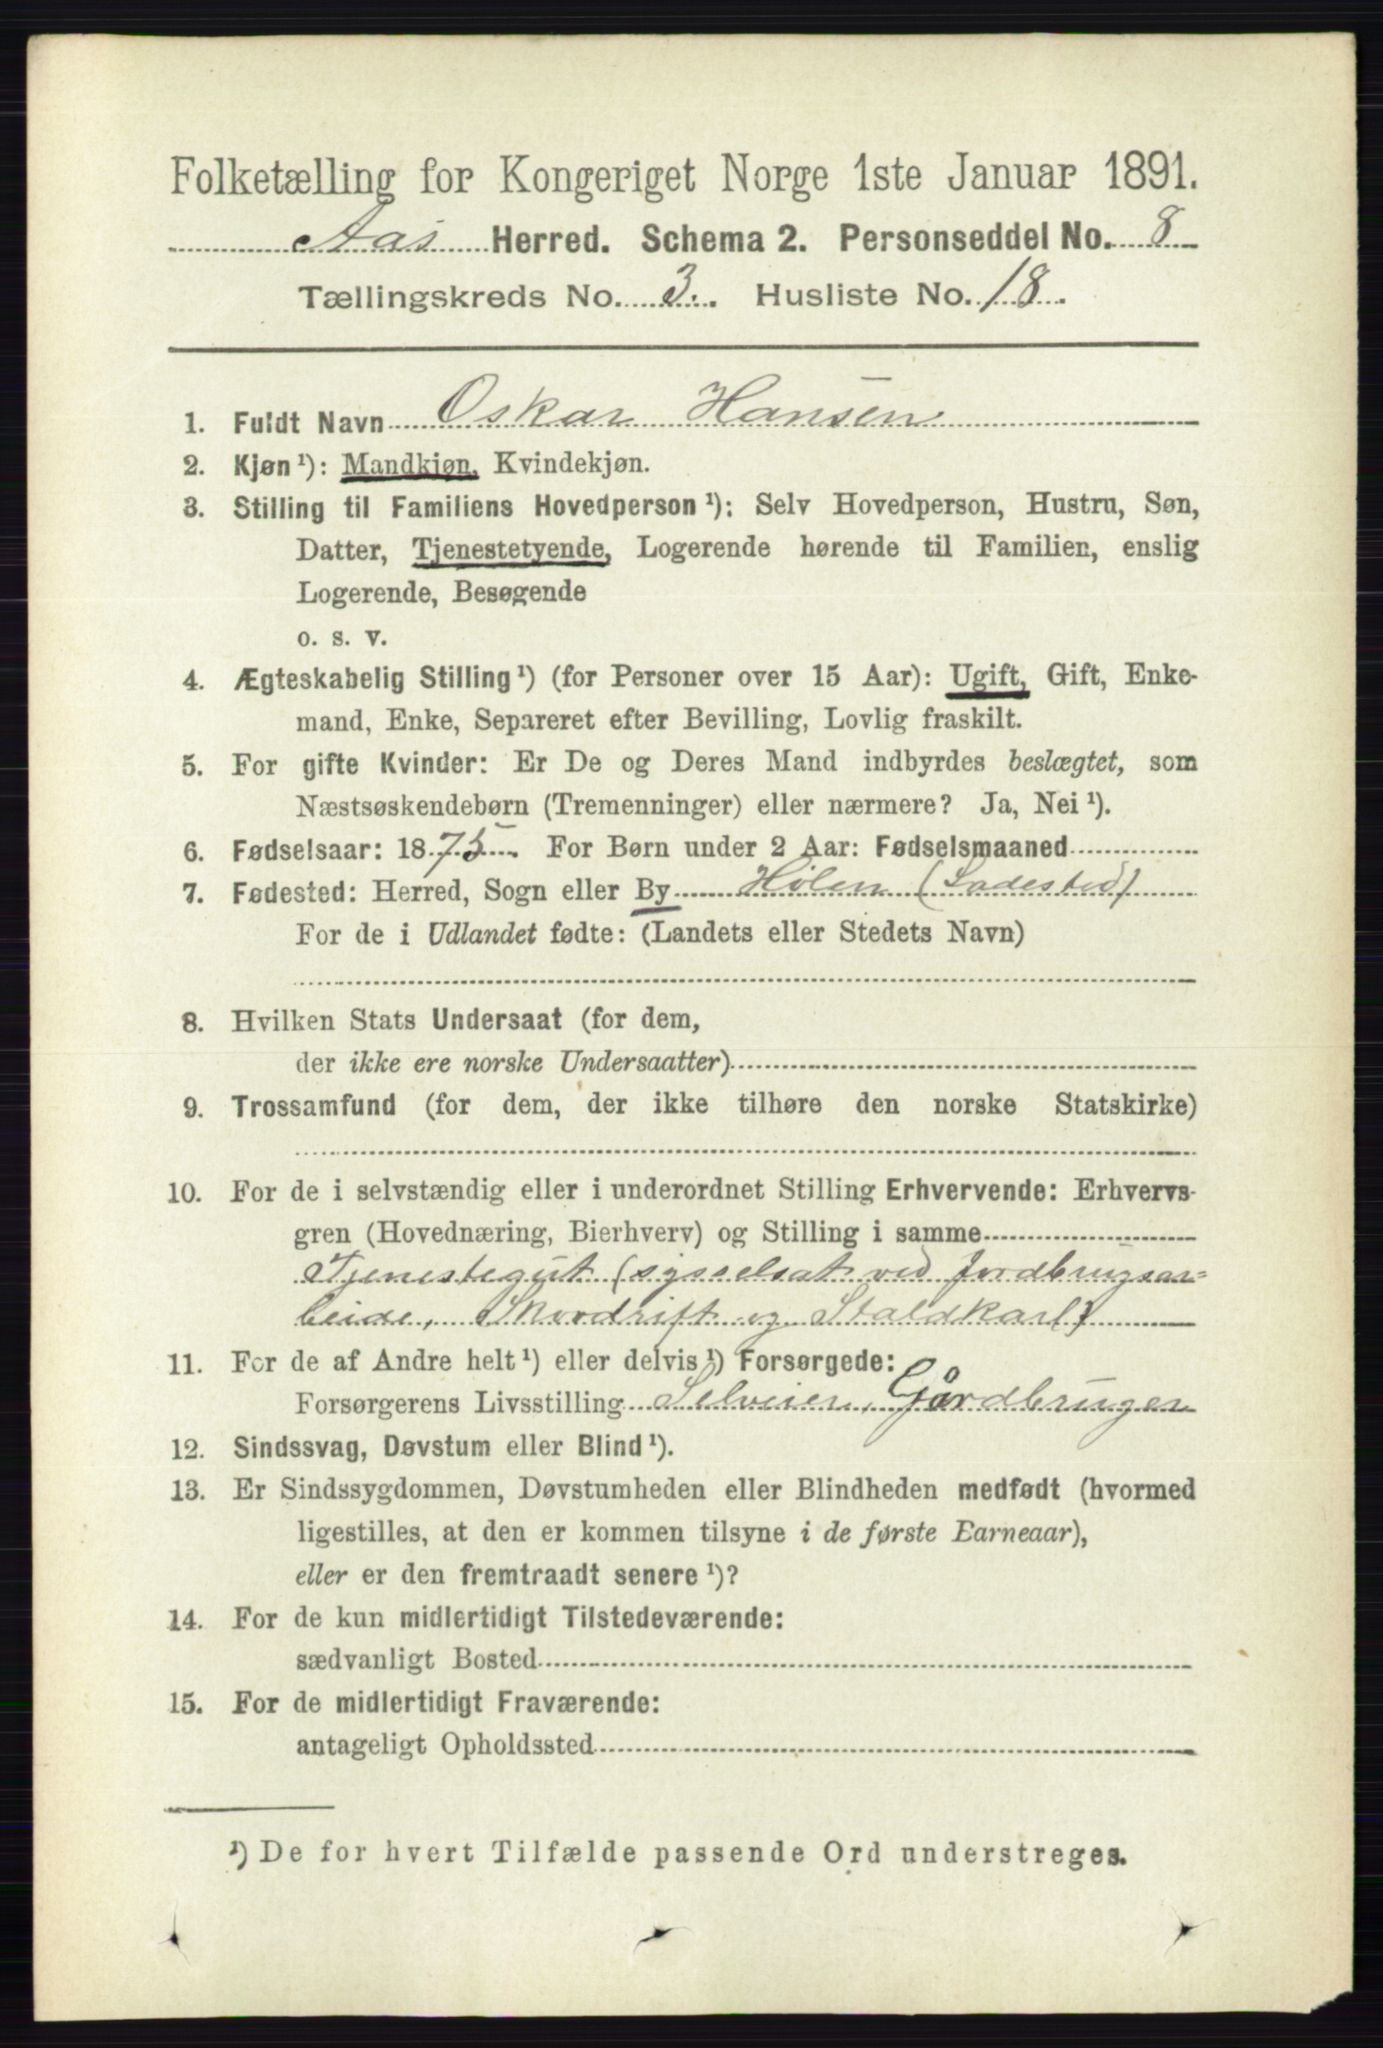 Folketælling for Kongeriget Norge 1ste Januar 1891.
Aas Herred. Schema 2. Personseddel No. 8
Tællingskreds No. 3. Husliste No. 18.
1. Fuldt Navn Oskar Hansen
2. Kjøn ¹): Mandkjøn, Kvindekjøn.
3. Stilling til Familiens Hovedperson ¹): Selv Hovedperson, Hustru, Søn,
Datter, Tjenestetyende, Logerende hørende til Familien, enslig
Logerende, Besøgende
o. s. v.
4. Ægteskabelig Stilling ¹) (for Personer over 15 Aar): Ugift, Gift, Enke-
mand, Enke, Separeret efter Bevilling, Lovlig fraskilt.
5. For gifte Kvinder: Er De og Deres Mand indbyrdes beslægtet, som
Næstsøskendebørn (Tremenninger) eller nærmere? Ja, Nei ¹).
6. Fødselsaar: 1875. For Børn under 2 Aar: Fødselsmaaned
7. Fødested: Herred, Sogn eller By Hølen (Ladested)
For de i Udlandet fødte: (Landets eller Stedets Navn)
8. Hvilken Stats Undersaat (for dem,
der ikke ere norske Undersaatter)
9. Trossamfund (for dem, der ikke tilhøre den norske Statskirke)
10. For de i selvstændig eller i underordnet Stilling Erhvervende: Erhvervs-
gren (Hovednæring, Bierhverv) og Stilling i samme
Tjenestegut (sysselsat ved Jordbrugsar-
beide, Skovdrift og Staldkarl)
11. For de af Andre helt ¹) eller delvis ¹) Forsørgede:
Forsørgerens Livsstilling Selveier, Gårdbruger
12. Sindssvag, Døvstum eller Blind ¹).
13. Er Sindssygdommen, Døvstumheden eller Blindheden medfødt (hvormed
ligestilles, at den er kommen tilsyne i de første Earneaar),
eller er den fremtraadt senere ¹)?
14. For de kun midlertidigt Tilstedeværende:
sædvanligt Bosted
15. For de midlertidigt Fraværende:
antageligt Opholdssted
¹) De for hvert Tilfælde passende Ord understreges.